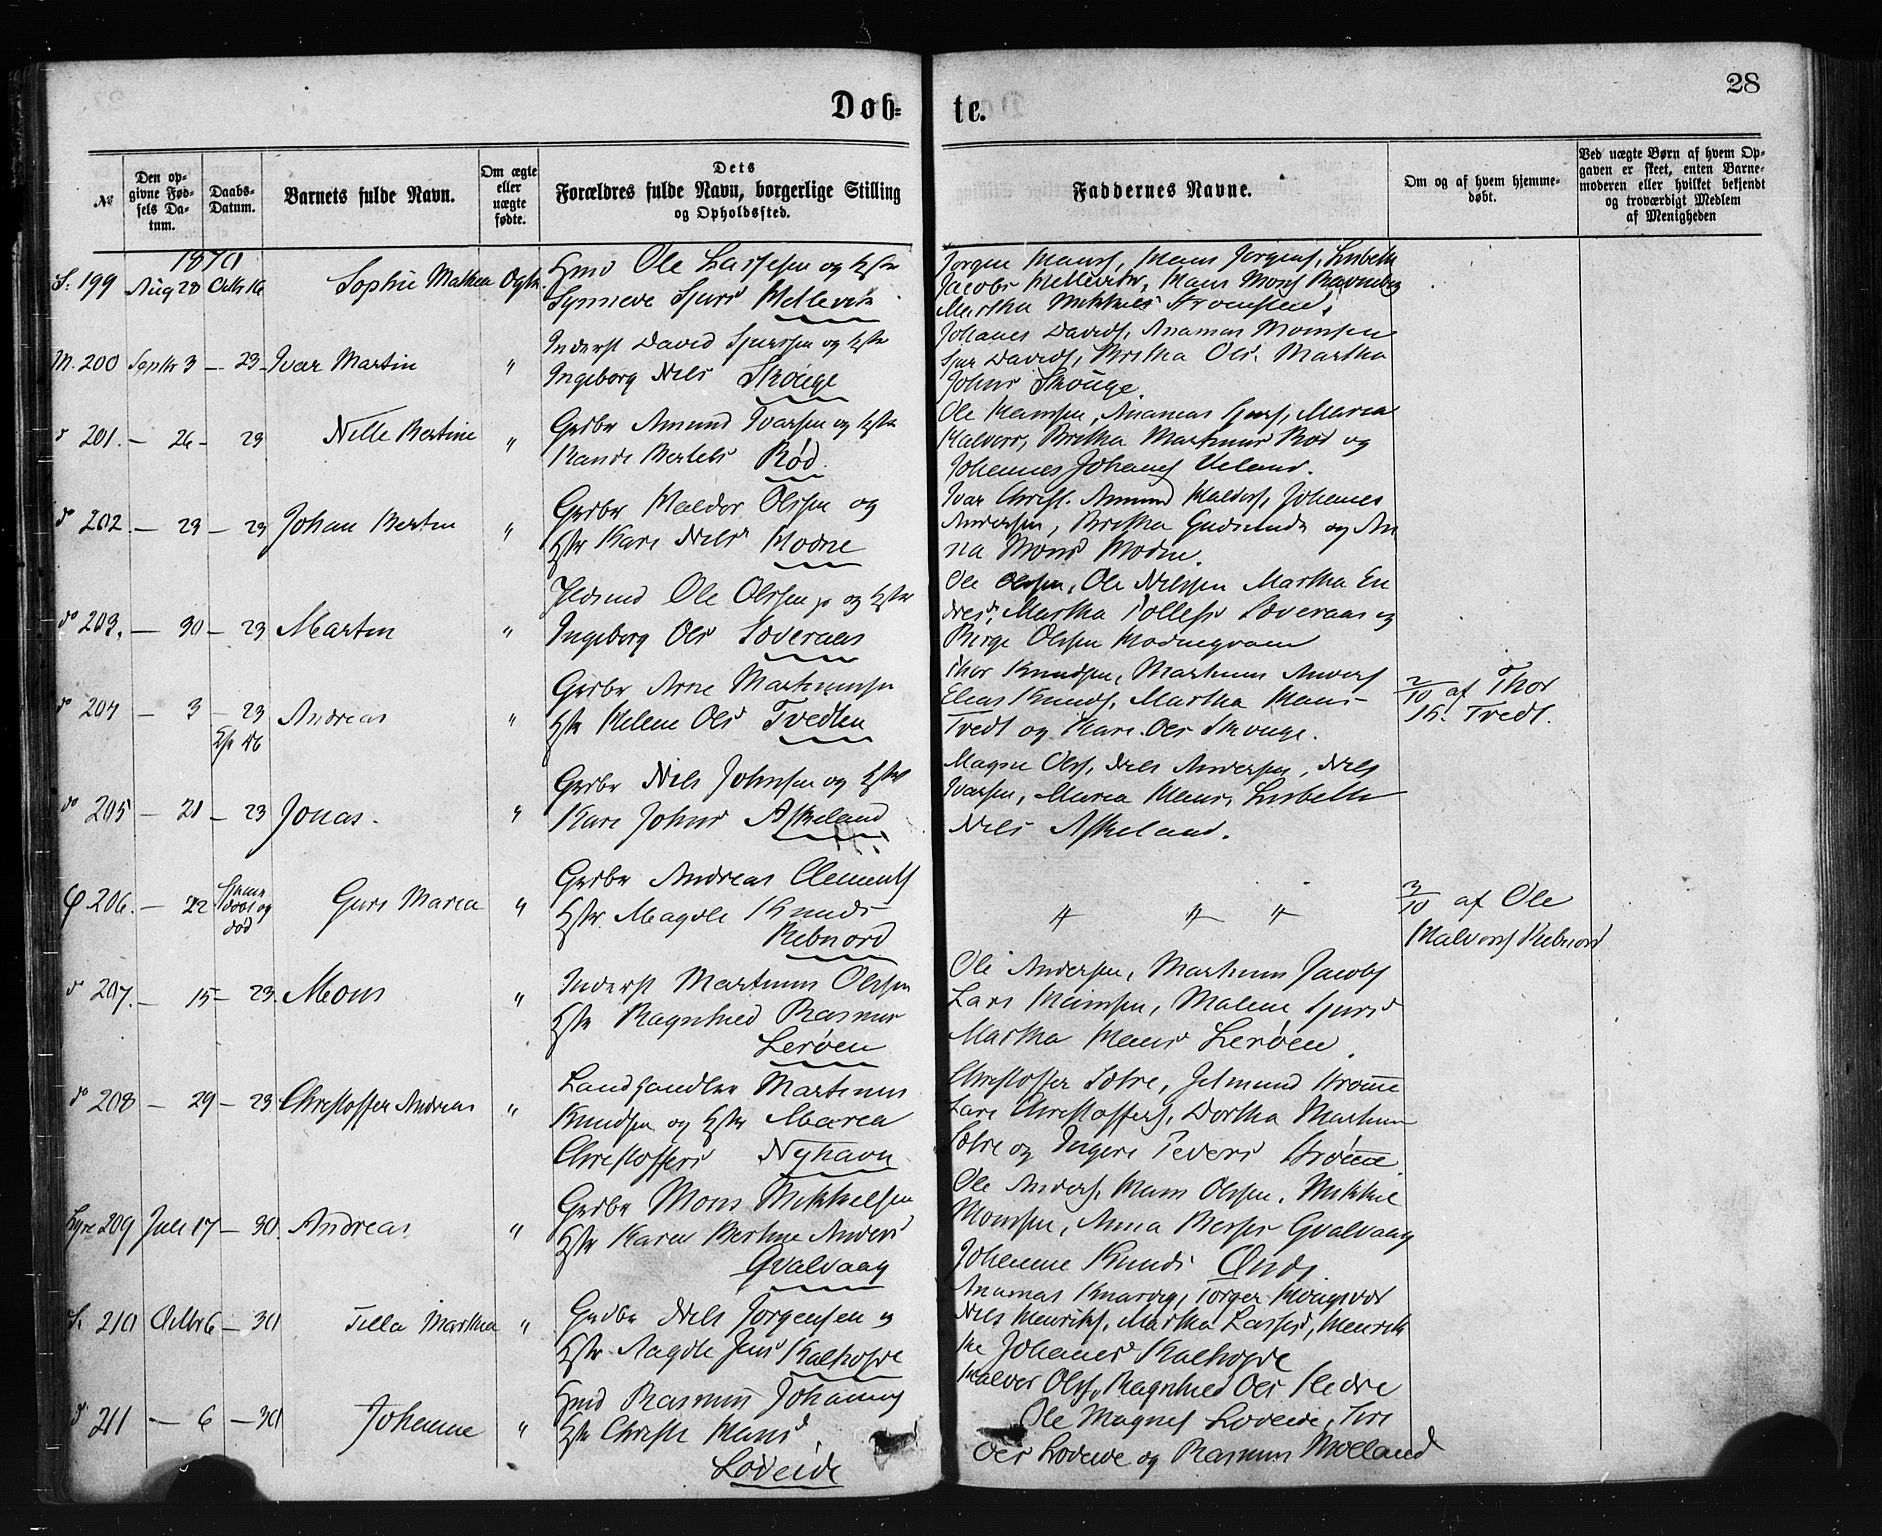 28
Døb-
te.
№
Den opgivne Fødsels Datum.
Daabs-Datum.
Barnets fulde Navn.
Om ægte eller uægte fødte.
Dets Forældres fulde Navn, borgerlige Stilling og Opholdssted.
Faddernes Navne.
Om og af hvem hjemmedøbt.
Ved uægte Børn af hvem Opgaven er skeet, enten Barnemoderen eller hvilket bekjendt og troværdigt Medlem af Menigheden
1870
S. 199 Aug 28 Octbr 16 Sophie Mathea Ogte
Ole Lassesen og Hstr
Synneve Sjurs Hellevik
Jørgen Hans, Hans Jørgens, Lisbeth
Jacobs Hellevik, Hans Mons Ravneberg
Martha Mikkels
M. 200 Septbr 3 — 23 Ivar Martin "
Inderst David Sjursen og Hstr
Ingeborg Nils Skouge
Johanes Davids, Ananias Monsen
Sjur Davids, Britha Ols, Martha
Johns Skouge.
d 201. — 26 — 23 Nille Bertine "
Grdbr Amund Ivarsen og Hstr
Rande Bertels Rød.
Ole Hansen, Ananias Sjurs, Maria
Halvors, Britha Martinus Rød og
Johannes Johans Ueland.
d 202 — 23 — 23 Johan Bertin "
Grdbr Haldor Olssen og
Hstr Kari Nils Hodne
Ivar Christ. Amund Haldors, Johanes
Andersen, Britha Gudmunds og An
na Mons Hodne.
do 203. — 30 — 23 Martin "
Ole Olssen og Hstr
Ingeborg Ols Loveraas
Ole Olssen, Ole Nilssen Martha En
dres, Martha Tollefs Loveraas og
Birge Olssen
d 204 — 3 — 23 Andreas "
Grdbr Arne Martinussen
Hstr Helene Ols Tvedten
Thor Knudsen, Martinus Anders
Elias Knuds, Martha Hans
Tvedt og Kari Ols Skouge.
2/10 af Thor
K. Tvedt.
do 205 — 21 — 23 Jonas. "
Grdbr Nils Johnsen og Hstr
Kari Johns Askeland
Magne Ols, Nils Andersen, Nils
Ivarsen, Maria Hans, Lisbeth
Nils Askeland.
206. — 22 hjemmedøbt og død Guri Maria "
Grdbr Andreas Clements
Hstr Magdle Knuds
Rebnord
" " "
3/10 af Ole
Halvors Rebnord
d 207. — 15 — 23. Mons "
Inderst Martinus Olssen
Hstr Ragnhild Rasmus
Lerøen
Ole Andersen, Martinus Jacobs
Lars Hansen, Malene Sjurs
Martha Hans Lerøen.
do 208 — 29 — 23 Christoffer Andreas "
Landhandler Martinus
Knudsen og Hstr Maria
Christoffers Nyhavn
Christoffer Sotre, Gjelmund Strømme
Lars Christoffers, Dortha Martinus
Sotre og Ingeri Peders Strømme.
209 Juli 17 — 30. Andreas "
Grdbr Mons Mikkelsen
Hstr Karen Bertine Anders
Qvalvaag
Ole Anders, Hans Olssen, Mikkel
Monsen, Anna Qvalvaag
Johanne Knuds
S. 210 Octbr 6 — 30 Tilla Marthea "
Grdbr Nils Jørgensen og
Hstr Aagote Jens Kaltvedt
Ananias Knarvig, Torger
Nils Henriks, Martha Lasses, Henrik
ke Johanes Kaltvedt
d 211 — 6 — 30 Johanne "
Rasmus Johannes
Hstr Christi Hans
Lodeide
Halvor Ols, Ragnhild Ols
Ole Magnes Lodeide, Siri
Ols Lodeide og Rasmus Møeland